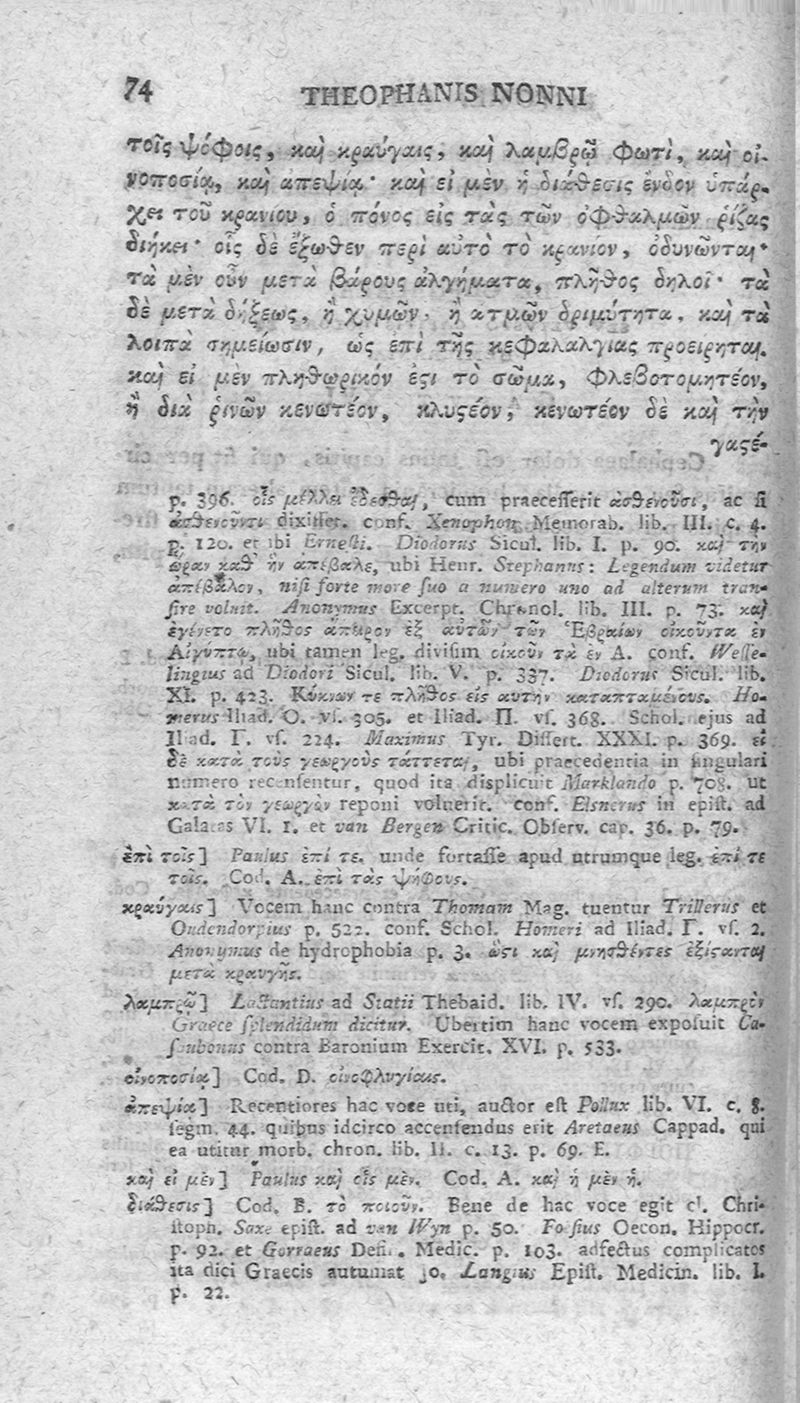 74 THEOPHANIS NONNI
τοῖς ψόφοις, καὶ κραύγαις, καὶ λαμβρῷ φωτὶ, καὶ οἰ-
νοποσίᾳ, καὶ ἀπεψίᾳ· καὶ εἰ μὲν ἡ διάθεσις ἔνδον ὑπάρ-
χει τοῦ κρανίου, ὁ πόνος εἰς τὰς τῶν ὀφθαλμῶν ῥίζας
διήκει· οἷς δὲ ἔξωθεν περὶ αὐτὸ τὸ κρανίον, ὀδυνῶνται·
τὰ μὲν οὖν μετὰ βάρους ἀλγήματα, πλῆθος δηλοῖ· τὰ
δὲ μετὰ δήξεως, ἢ χυμῶν· ἢ ατμῶν δριμύτητα. καὶ τὰ
λοιπὰ σημείωσιν, ὡς ἐπὶ τῆς κεφαλαλγίας προείρηται.
καὶ εἰ μὲν πληθωρικόν ἐϛι τὸ σῶμα, φλεβοτομητέον,
ἢ διὰ ῥινῶν κενωτέον, κλυϛέον, κενωτέον δὲ καὶ τὴν
γαϛέ-
p. 396. οἷς μέλλει ἔδεσθαι, cum praecesserit ἀσθενοῦσι, ac si
ἀσθενοῦντι dixisset. conf. Xenophon Memorab. lib. III. c. 4.
p. 120. et ibi Ernesti. Diodorus Sicul. lib. I. p. 90. καὶ τὴν
ὥραν καθ᾽ ἣν ἀπέβαλε, ubi Henr. Stephanus: Legendum videtur
ἀπέβαλον, nisi forte more suo a numero uno ad alterum tran-
sire voluit. Anonymus Excerpt. Chronol. lib. III. p. 73. καὶ
ἐγίνετο πλῆθος ἄπειρον ἐξ αὐτῶν τῶν Ἑβραίων οἰκοῦντα ἐν
Αἰγύπτῳ, ubi tamen leg. divisim οἰκοῦν τὰ ἐν A. conf. Wesse-
lingius ad Diodori Sicul. lib. V. p. 337. Diodorus Sicul. lib.
XI. p. 423. Κύκνων τε πλῆθος εἰς αυτην καταπταμένους. Ho-
merus Iliad. O. vs. 305. et Iliad. Π. vs. 368. Schol. ejus ad
Iliad. Γ. vs. 224. Maximus Tyr. Dissert. XXXI. p. 369. εἰ
δὲ κατὰ τοὺς γεωργοὺς τάττεται, ubi praecedentia in singulari
numero recensentur, quod ita displicuit Marklando p. 708. ut
κατὰ τὸν γεωργὸν reponi voluerit. conf. Elsnerus in epist. ad
Galatas VI. 1. et van Bergen Critic. Observ. cap. 36. p. 79.
ἐπὶ τοῖς] Paulus ἐπί τε. unde fortasse apud utrumque leg. ἐπί τε
τοῖς. Cod. A. ἐπὶ τὰς ψήφους.
κραύγαις] Vocem hanc contra Thomam Mag. tuentur Trillerus et
Oudendorpius p. 522. conf. Schol. Homeri ad Iliad. Γ. vs. 2.
Anonymus de hydrophobia p. 3. ὥϛι καὶ μνησθέντες ἐξίϛανται
μετὰ κραυγῆς.
λαμπρῷ] Lactantius ad Statii Thebaid. lib. IV. vs. 290. λαμπρὸν
Graece splendidum dicitur. Ubertim hanc vocem exposuit Ca-
saubonus contra Baronium Exercit. XVI. p. 533.
οἰνοποσίᾳ] Cod. D. οἰνοφλυγίαις.
ἀπεψίᾳ] Recentiores hac voce uti, auctor est Pollux lib. VI. c. 8.
segm. 44. quibus idcirco accensendus erit Aretaeus Cappad. qui
ea utitur morb. chron. lib. II. c. 13. p. 69. E.
καὶ εἰ μὲν] Paulus καὶ οἷς μὲν. Cod. A. καὶ ἡ μὲν ἡ.
διάθεσις] Cod. B. τὸ ποιοῦν. Bene de hac voce egit cl. Chri-
stoph. Saxe epist. ad van Wyn p. 50. Foesius Oecon. Hippocr.
p. 92. et Gorraeus Defin. Medic. p. 103. adfectus complicatos
ita dici Graecis autumat Jo. Langius Epist. Medicin. lib. I.
p. 22.